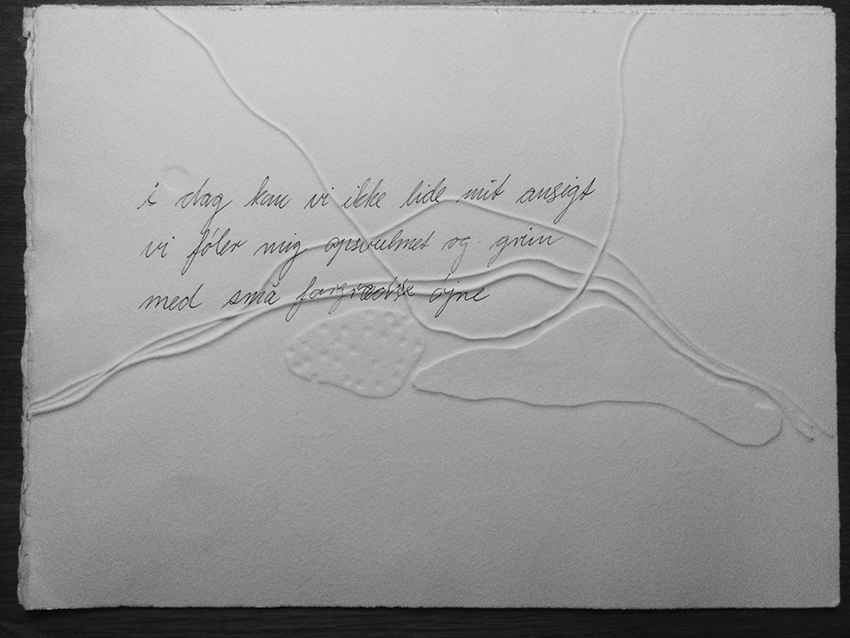 i dag kan vi ikke lide mit ansigt
vi føler mig opsvulmet og grim
med små forgrædte øjne